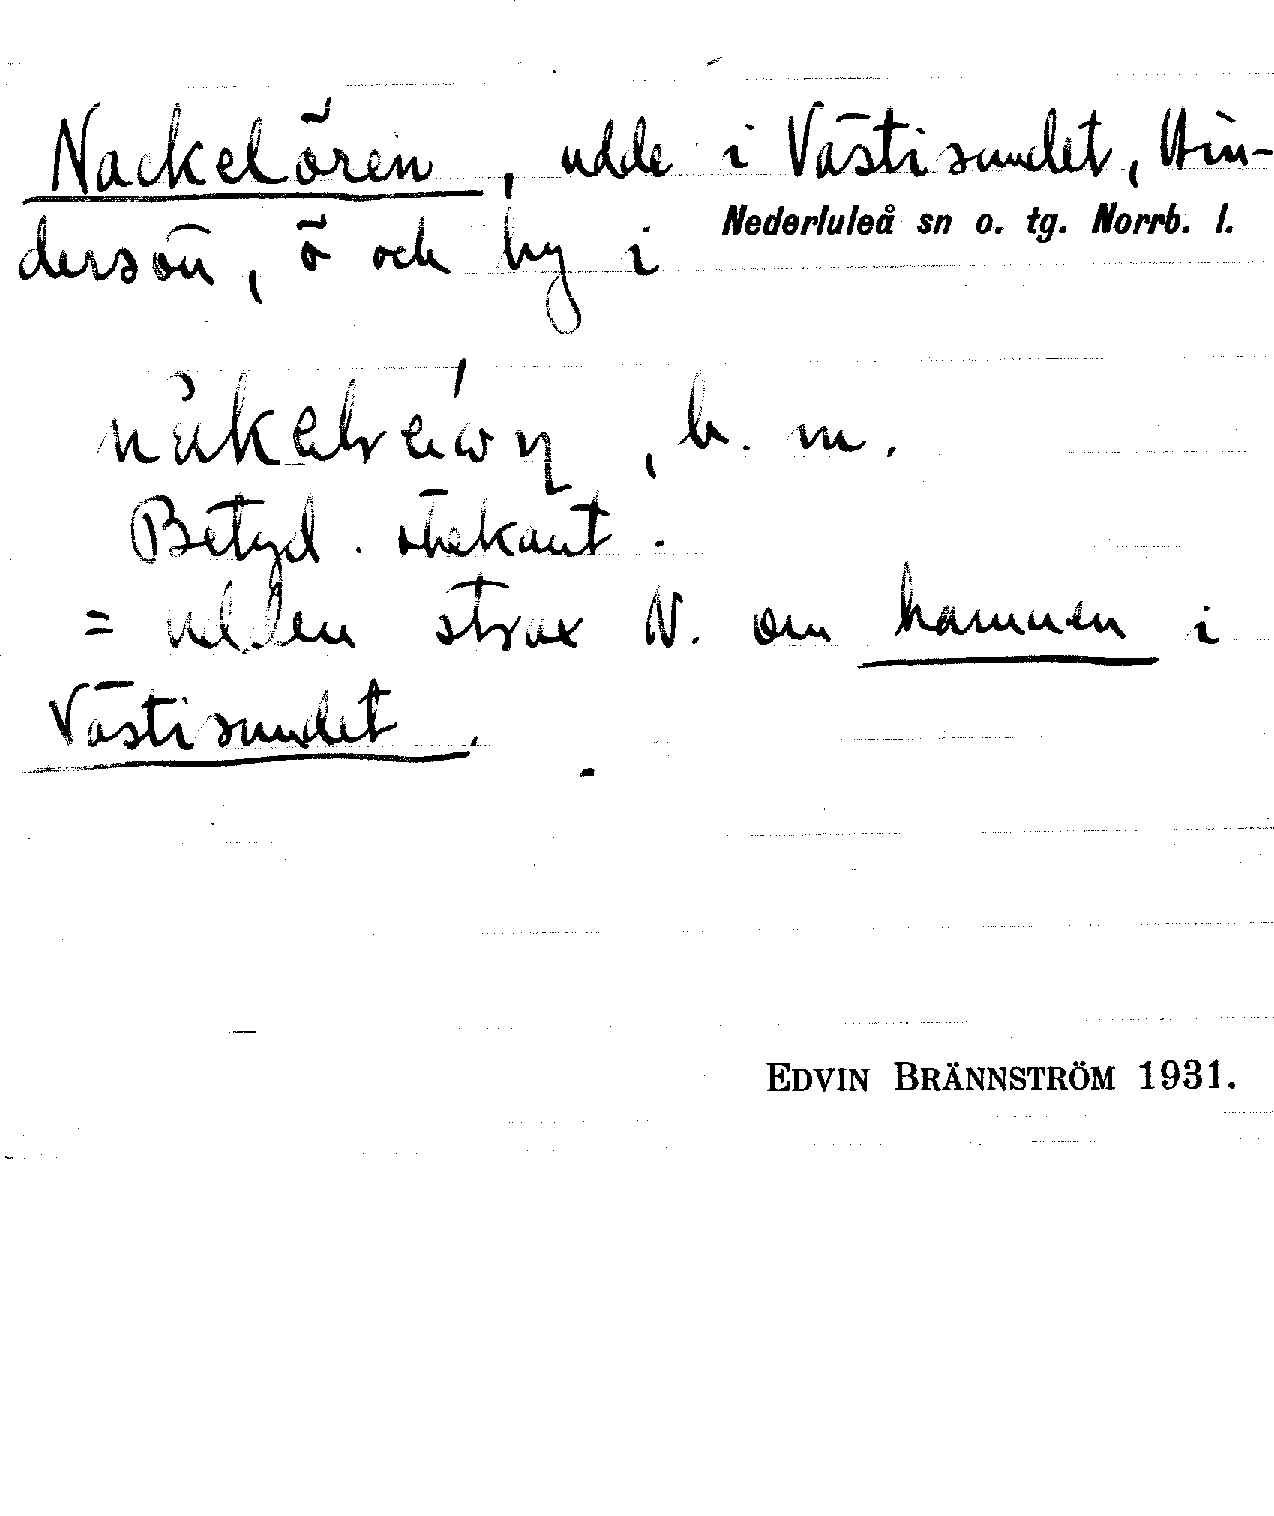 Nackelören, udde i Västisundet, Hin-
dersön, ö och by i Nederluleå sn o. tg. Norrb. l.
, b. m.
Betyd. obekant.
= udden strax N. om hamnen i
Västisundet.
EDVIN BRÄNNSTRÖM 1931.